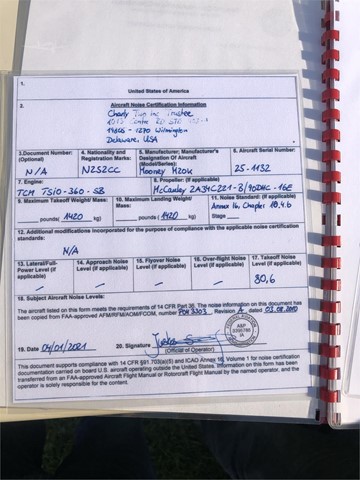 1.
United States of America
2. Aircraft Noise Certification Information
Charly Inc Trustee
19805 - 1270 Wilmington
Delaware, USA
3.Document Number: (Optional)
N/A
4. Nationality and Registration Marks:
N252CC
5. Manufacturer; Manufacturer's Designation Of Aircraft (Model/Series):
Mooney M20K
6. Aircraft Serial Number:
25-1132
7. Engine:
TCM TSIO-360-SB
8. Propeller: (if applicable)
McCauley 2A34C221-B/90DHC-16E
9. Maximum Takeoff Weight/ Mass:
pounds( 1420 kg)
10. Maximum Landing Weight/ Mass:
pounds ( 1420 kg)
11. Noise Standard: (if applicable)
Annex 16, Chapter 10.4.b
Stage
12. Additional modifications incorporated for the purpose of compliance with the applicable noise certification standards:
N/A
13. Lateral/Full-Power Level (if applicable)
–
14. Approach Noise Level (if applicable)
–
15. Flyover Noise Level (if applicable)
–
16. Over-flight Noise Level (if applicable)
–
17. Takeoff Noise Level (if applicable)
80,6
18. Subject Aircraft Noise Levels:
The aircraft listed on this form meets the requirements of 14 CFR Part 36. The noise information on this document has been copied from FAA-approved AFM/RFM/AOM/FCOM, number Revision A dated 03.08.2010
19. Date 04/01/2021
20. Signature
(Official of Operator)
This document supports compliance with 14 CFR §91.703(a)(5) and ICAO Annex 16, Volume 1 for noise certification documentation carried on board U.S. aircraft operating outside the United States. Information on this form has been transferred from an FAA-approved Aircraft Flight Manual or Rotorcraft Flight Manual by the named operator, and the operator is solely responsible for the content.